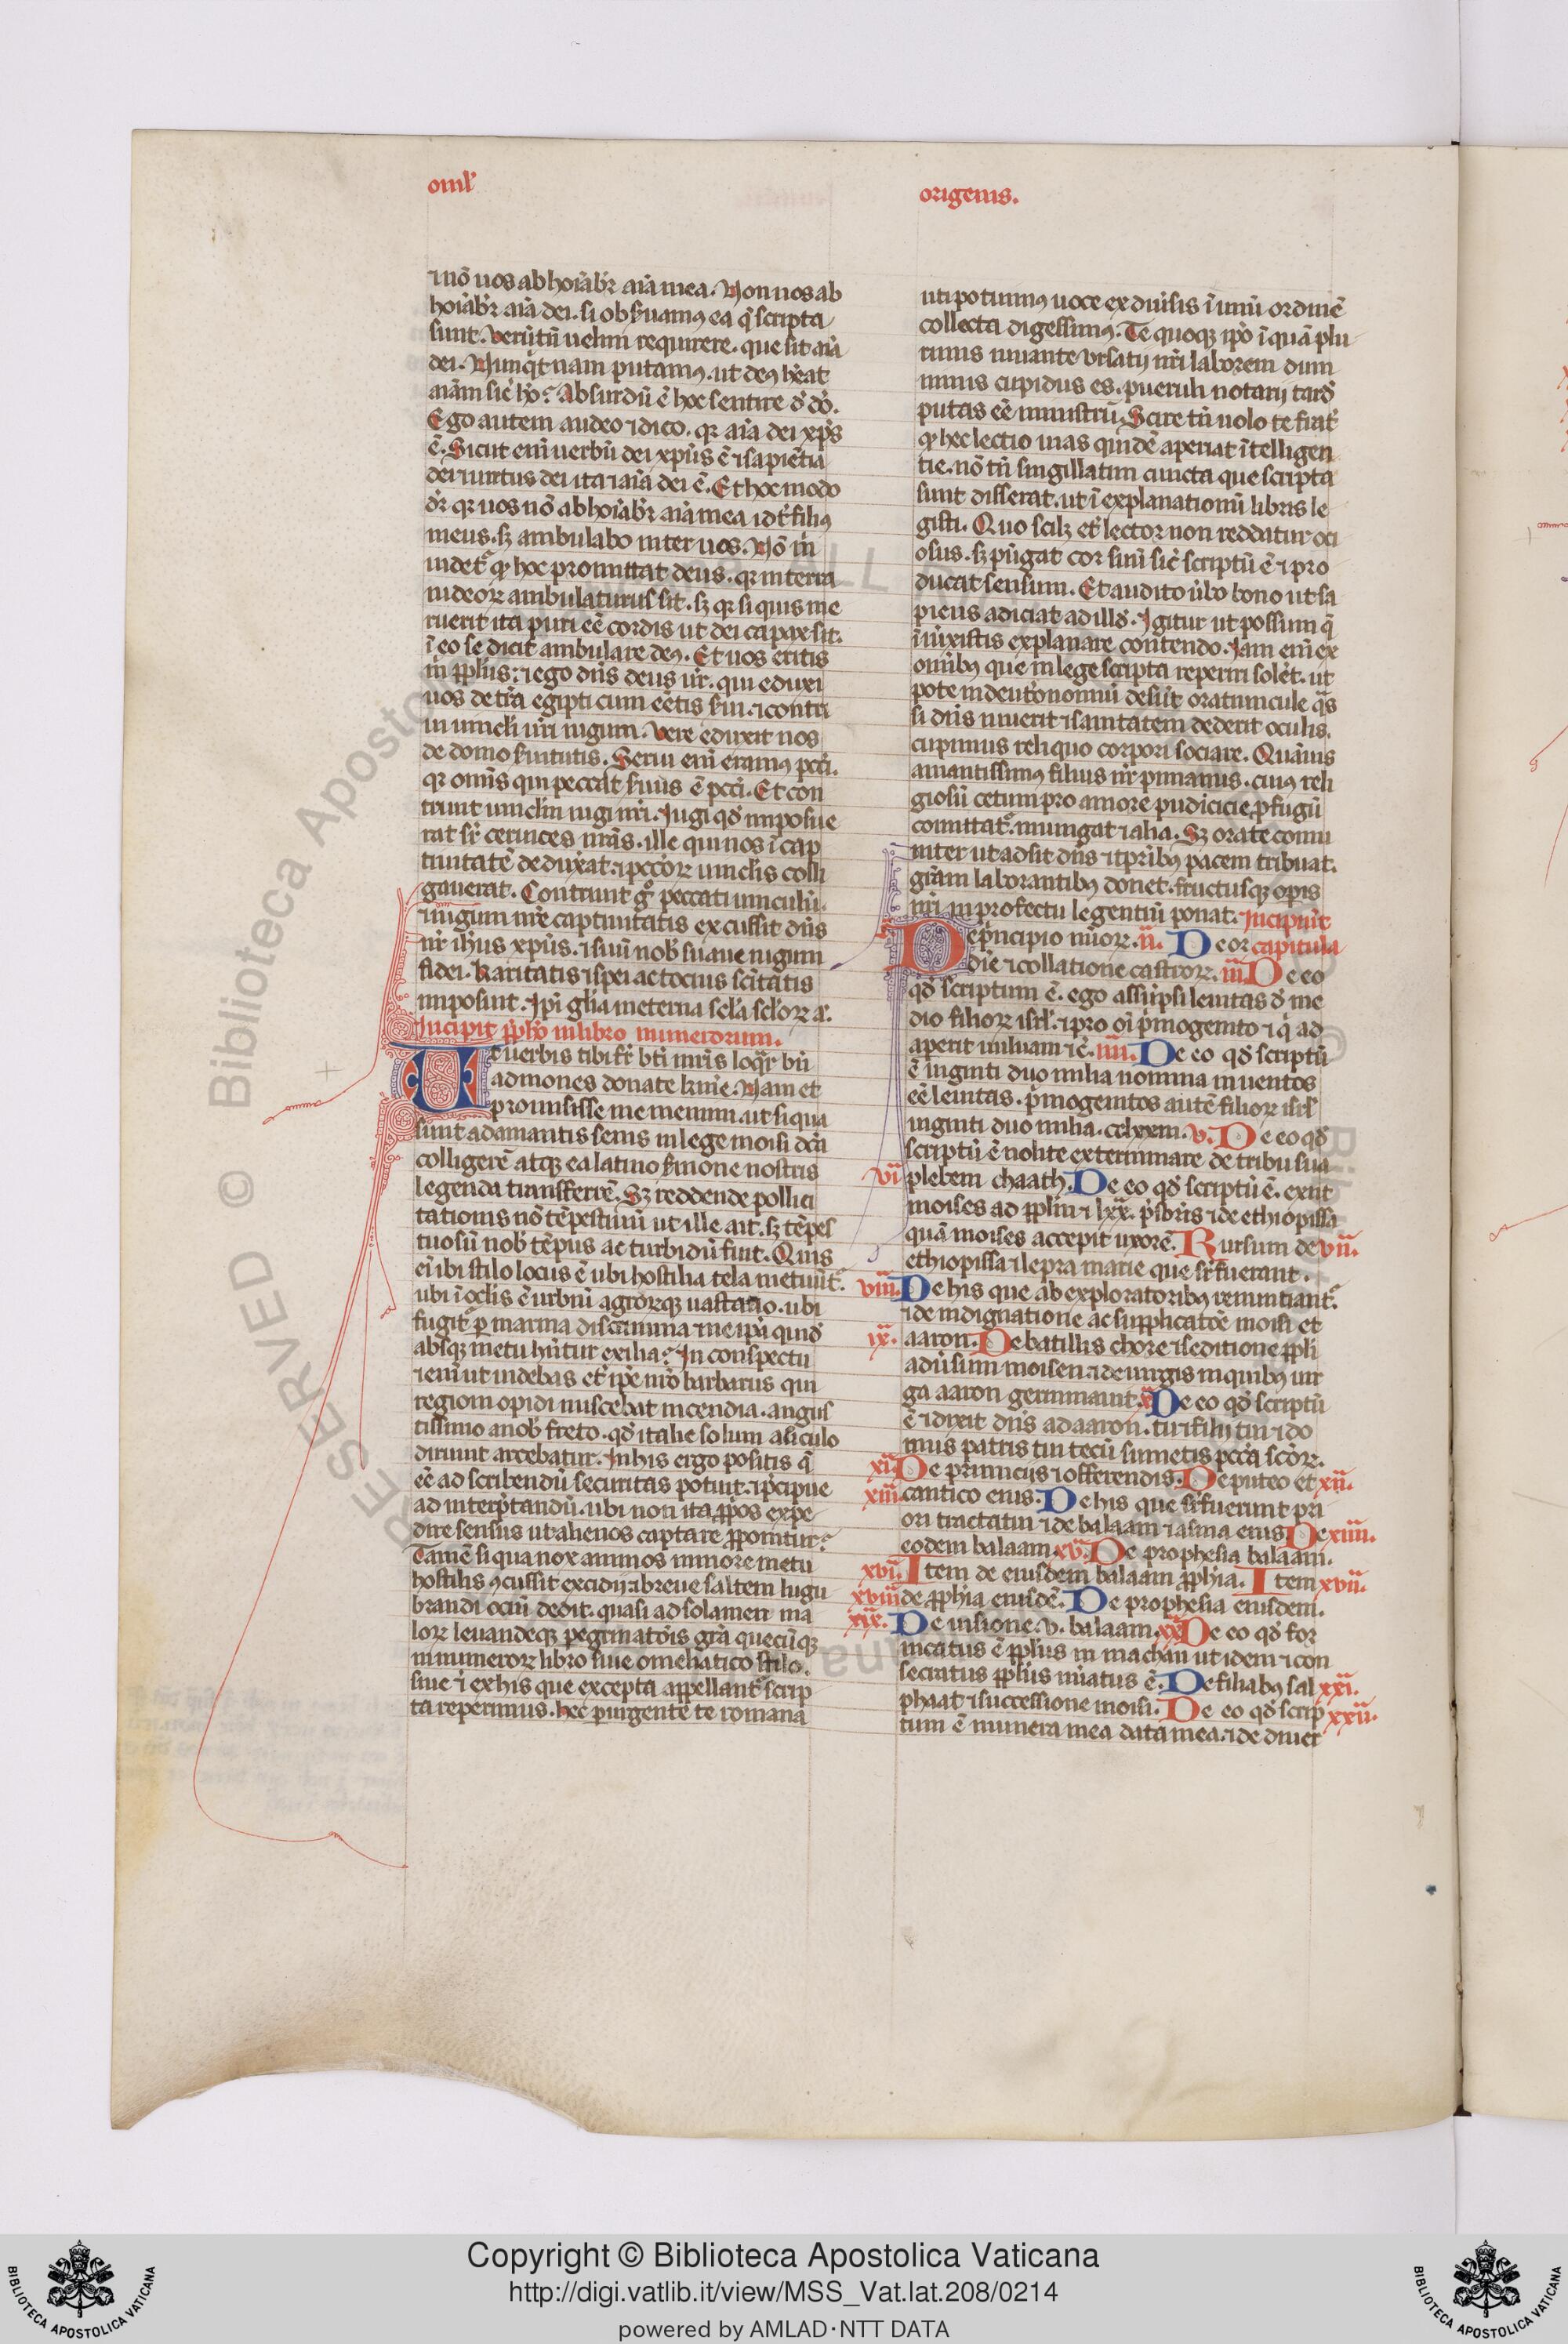 oml'
origenis.
⁊ nō uos abhoīabr̄ aīa mea. Non uos ab
hoīabr̄ aīa dei. si obſuamꝰ ea q̄ scripta
sunt. Verūtn̄ uelim requirere. que sit aīa
dei. Nunqͥt nam putamꝰ. ut deꝰ hēat
aīam sic̄ hō? Absurdū ē hoc sentire d' dō.
Ego autem audeo ⁊ dico. qr aīa dei xp̄s
ē. Sicut enī uerbū dei xp̄us ē ⁊ sapiētia
dei ⁊ uirtus dei ita ⁊ aīa dei ē. Et hoc modo
dr̄ qr uos nō abhoīabr̄ aīa mea id ē filiꝰ
meus. sꝫ ambulabo inter uos. Nō m̄
uidet̄ qͥ hoc promittat deus. qr in terra
iudeoꝝ ambulaturus sit. sꝫ qr si quis me
ruerit ita puri eē cordis ut dei capax sit.
ī eo se dicit ambulare deꝰ. Et uos eritis
m̄ ppl'us. ⁊ ego dn̄s deus ur̄. qui eduxi
uos de tr̄a egipti cum eētis ſui. ⁊ contri
ui uincl'i ur̄i iugum. Vere eduxit nos
de domo ſuitutis. Serui enī eramꝰ pcc̄i.
qr omīs qui peccat ſuus ē pcc̄i. Et con
triuit uincl'm iugi nr̄i. Jugi qd' imposue
rat sr̄ ceruices nr̄as. ille qui nos ī cap
tiuitatē deduxat. ⁊ pcc̄oꝝ uincl'is colli
gauerat. Contriuit gͦ peccati uinculū.
⁊ iugum nr̄e captiuitatis excussit dn̄s
nr̄ ih'us xp̄us. ⁊ suū nob' suaue iugum
fidei. karitatis ⁊ spei ac tocius scītatis
imposuit. Ip̄i gl'ia in eterna scl'a scl'oꝝ a.
Incipit pph'o in libro numerorum.
Ut uerbis tibi fr̄ bt̄i mr̄is loqr̄ bn̄
admones donate kr̄ie. Nam et
promisisse me memini. ut si qua
sunt adamantis senis in lege moisi dc̄a
colligerē atqꝫ ea latino ſmone nostris
legenda transferrē. Sꝫ reddende pollici
tationis nō tēpestiuū ut ille ait. sꝫ tēpes
tuosū nob' tēpus ac turbidū fuit. Quis
eī ibi stilo locus ē ubi hostilia tela metuūt̄.
ubi ī oclis ē urbiū agroꝝqꝫ uastatio. ubi
fugit̄ ꝑ marina discrimina ⁊ ne ip̄a quid'
absqꝫ metu hn̄tur exilia? In conspectu
⁊ enī ut uidebas et̄ ip̄e nr̄o barbarus qui
regiom opidi miscebat incendia. angus
tissimo a nob' freto. qd' italie solum a siculo
dirimit arcebatur. In his ergo positis q̄
eē ad scribendū securitas potuit. ⁊ p̄cipue
ad interp̄tandū. ubi non ita pp̄os expe
dire sensus ut alienos captare pponitur?
Tamē si qua nox animos minore metu
hostilis ꝯcussit excidij: ⁊ breue saltem lugu
brandi ociū dedit. quasi ad solamen ma
loꝝ leuandeqꝫ peginatōis grā quecūqꝫ
in numeroꝝ libro siue omeliatico stilo.
siue ⁊ ex his que excepta appellant̄ scrip
ta reperimus. hec ꝑurgente te romana
uti potuimꝰ uoce ex diūsis ī unū ordinē
collecta digessimꝰ. Te quoqꝫ ip̄o ī quā plu
rimis iuuante ursatij nr̄i laborem dum
nimis cupidus es. pueruli notarij tard'
putas eē ministrū. Scire tn̄ uolo te frat̄
qͥ hec lectio uias quidē aperiat ītelligen
tie. nō tn̄ singillatim cuncta que scripta
sunt disserat. ut ī explanationū libris le
gisti. Quo scilꝫ et̄ lector non reddatur oci
osus. sꝫ pūgat cor suū sic̄ scriptū ē ⁊ pro
ducat sensum. Et audito ūbo bono ut sa
piens adiciat ad illd'. Igitur ut possum q̄
īiūxistis explanare contendo. Jam enī ex
omībꝰ que in lege scripta reperiri solēt. ut
pote in deut̄onomiū desūt oratiuncule q̄s
si dn̄s iuuerit ⁊ sanitatem dederit oculis.
cupimus reliquo corpori sociare. Quāuis
amantissimꝰ filius nr̄ pinianus. cuiꝰ reli
giosū cetum pro amore pudicicie ꝓfugū
comitat̄. iniungat ⁊ alia. Sꝫ orate comu
niter ut adsit dn̄s ⁊ tp̄ribꝰ pacem tribuat.
grām laborantibꝰ donet. fructusqꝫ opis
nr̄i in profectu legentiū ponat. Incipiūt
De p̄ncipio nūoꝝ. ii. De or capitula
dīe ⁊ collatione castroꝝ. iii. De eo
qd' scriptum ē. ego assūpsi leuitas d' me
dio filioꝝ isrl'. ⁊ pro oī p̄mogenito ⁊ q̄ ad
aperit uuluam ⁊c̄. iiii. De eo qd' scriptū
ē uiginti duo milia nomina inuentos
eē leuitas. p̄mogenitos autē filioꝝ isrl'
uiginti duo milia. cclxxiii. v. De eo qd'
scriptū ē nolite exterminare de tribu sua
vi plebem chaath. De eo qd' scriptū ē. exiit
moises ad pplm ⁊ lxx. p̄sbr̄is ⁊ de ethiopissa
quā moises accepit uxorē. Rursum de vii.
ethiopissa ⁊ lepra marie que sr̄fuerant.
viii. De his que ab exploratoribꝰ renuntiant̄.
⁊ de indignatione ac supplicatōe moisi et
ix. aaron. De batillis chore ⁊ seditione ppl'i
aduīsum moisen. ⁊ de uirgis in quibꝰ uir
ga aaron germinauit. x De eo qd' scriptū
ē ⁊ dixit dn̄s ad aaron. tu ⁊ filij tui ⁊ do
mus patris tui tecū sumetis pcc̄a scōꝝ.
xi. De primicijs ⁊ offerendis. De puteo et xii.
xiii. cantico eius. De his que sr̄fuerunt pri
ori tractatui ⁊ de balaam ⁊ asina eius De xiiii.
eodem balaam. xv. De prophesia balaam.
xvi. Item de eiusdem balaam pph'ia. Item xvii.
xviii de pph'ia eiusdē. De prophesia eiusdem.
xix. De uisione. v. balaam. xx De eo qd' for
nicatus ē ppl'us in machan ut idem ⁊ con
secratus ppl'us iniatus ē. De filiabꝰ sal xxi.
phaat ⁊ successione moisi. De eo qd' scrip xxii.
tum ē munera mea data mea. ⁊ de diuer
Copyright © Biblioteca Apostolica Vaticana
http://digi.vatlib.it/view/MSS_Vat.lat.208/0214
powered by AMLAD·NTT DATA
BIBLIOTECA APOSTOLICA VATICANA
BIBLIOTECA APOSTOLICA VATICANA